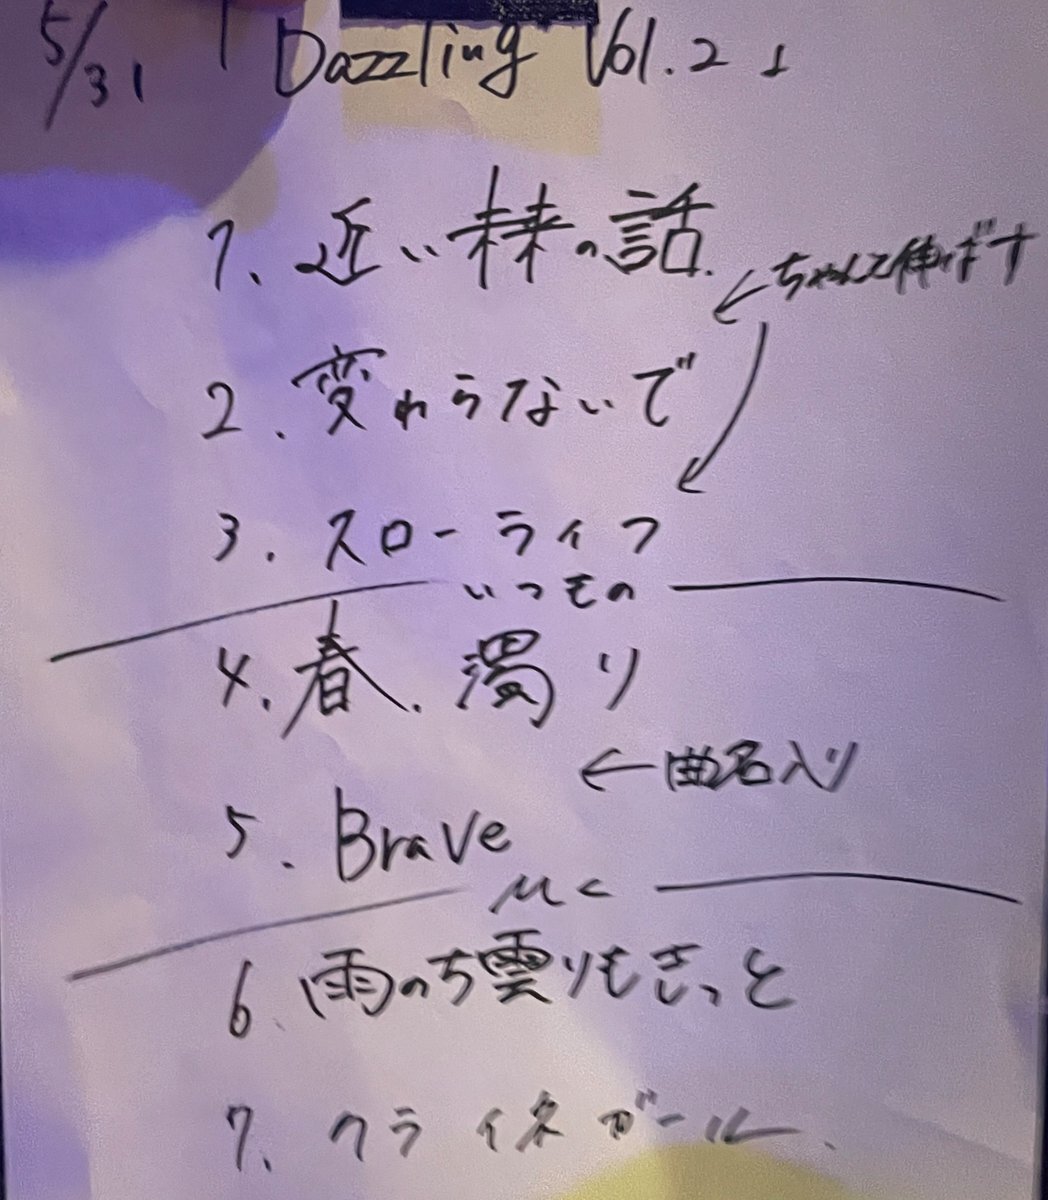 5/31 「Dazzling Vol.2」
1. 近い未来の話.
← ちゃんと伸ばす
2. 変わらないで
3. スローライフ
いつもの
4. 春、濁り
← 曲名入り
5. Brave
MC
6. 雨のち雲りもきっと
7. クライネガール.